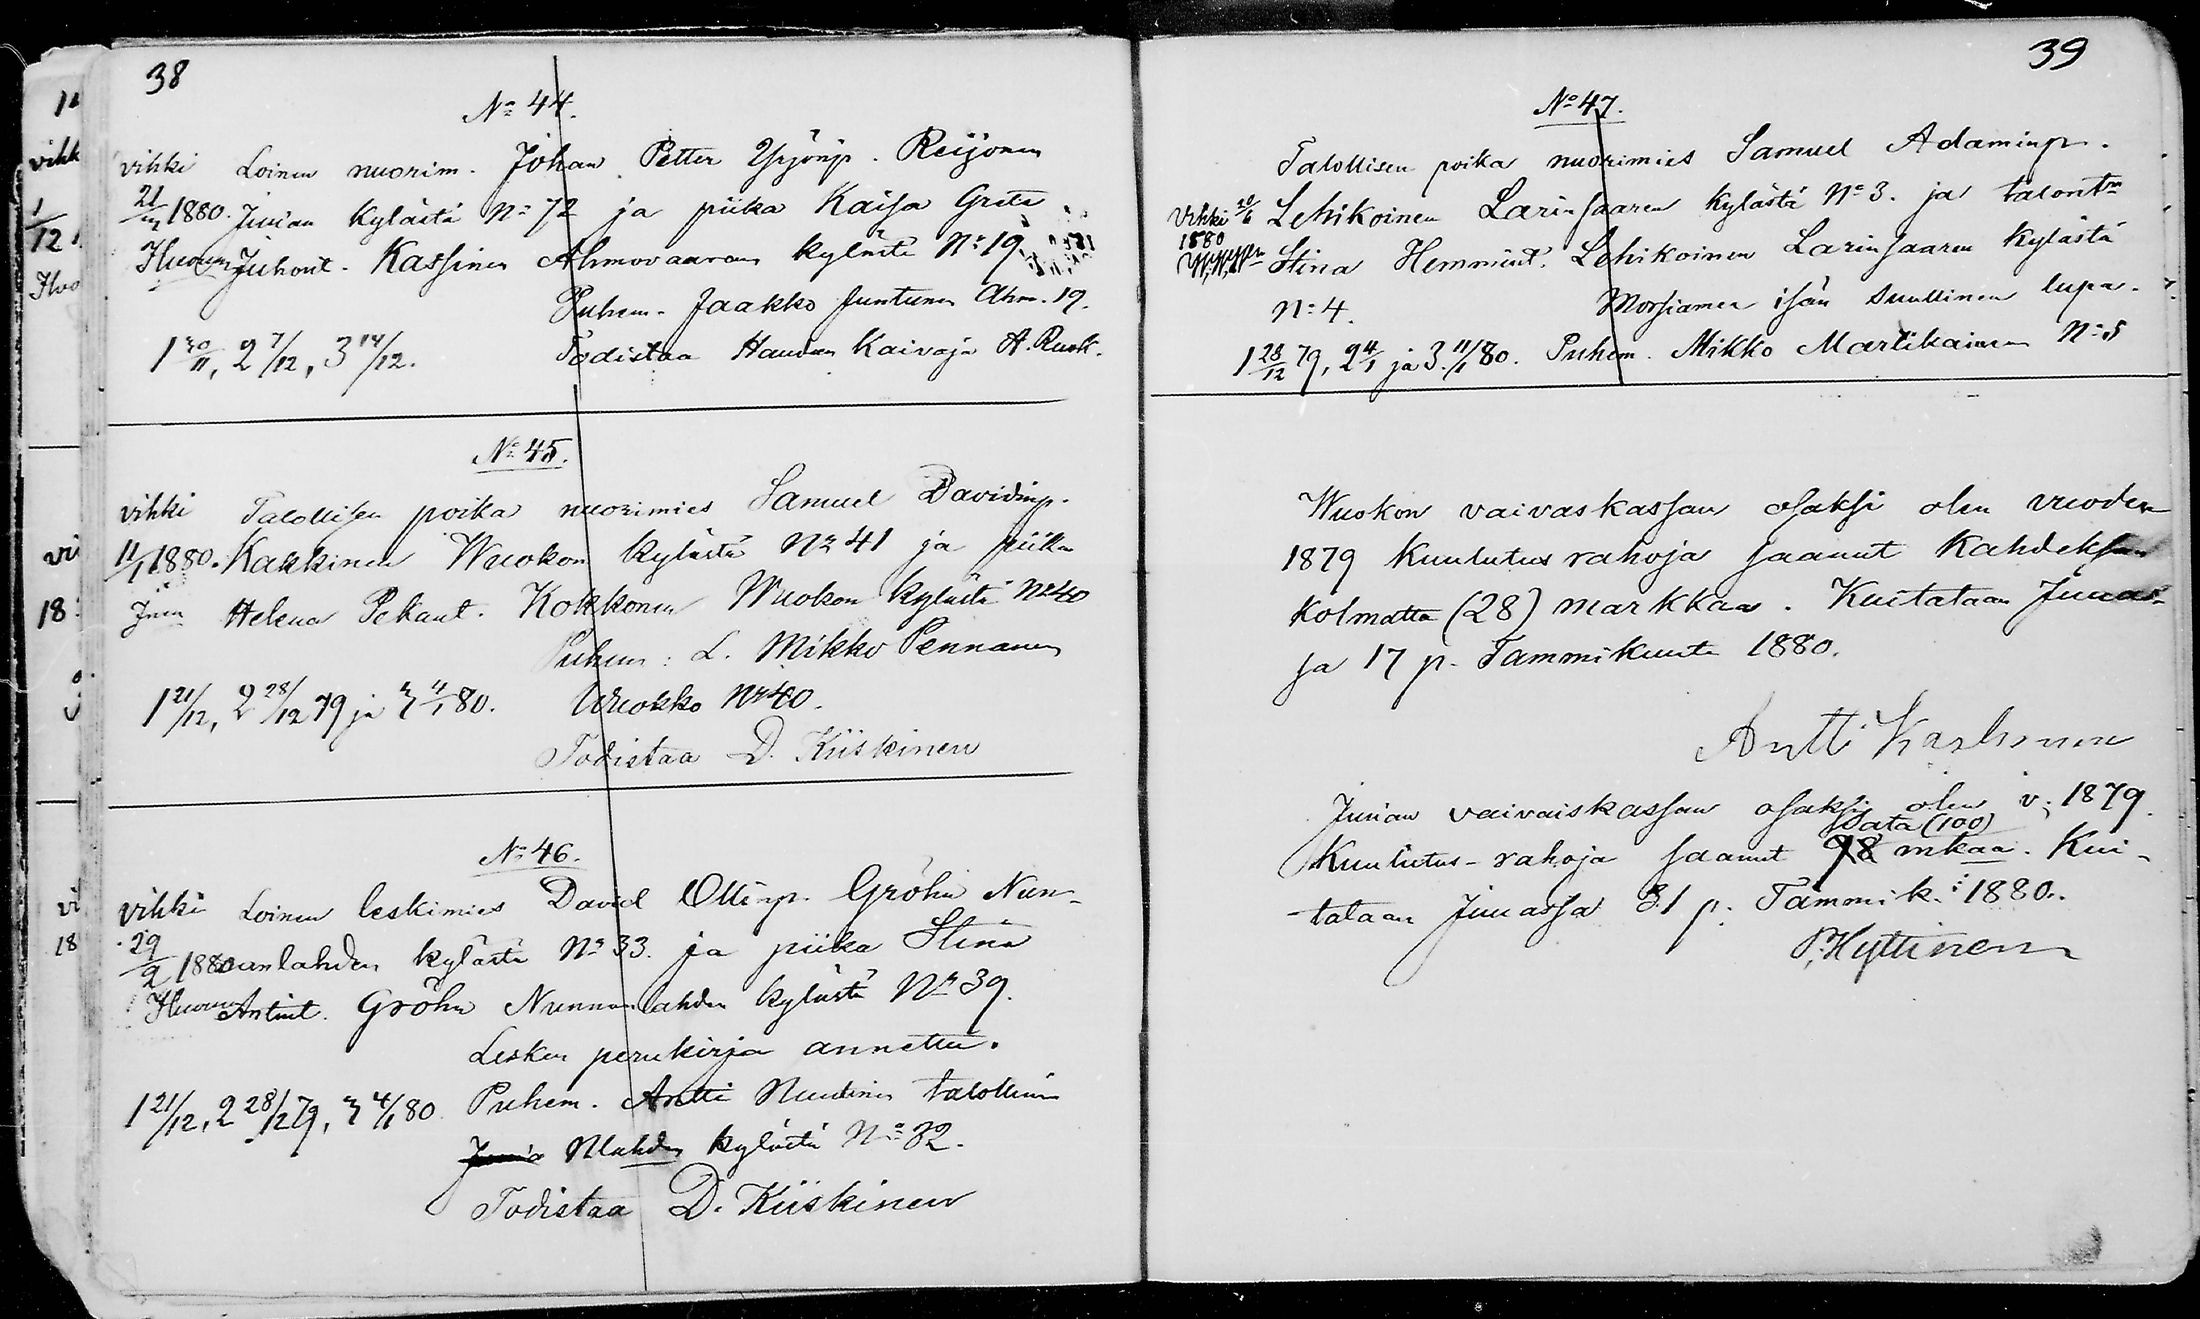 38
No 44.
vihki Loinen nuorim. Johan Petter Yrjönp. Reijonen
21/ 1880. Juuan kylästä No 72 ja piika Kaisa Greta
Juhont. Kassinen Ahmovaaran kylästä No 19
Puhem. Jaakko Juntunen Ahm. 19.
1 30/11, 2 7/12, 3 14/12. Todistaa Haudan Kaivaja A. Rusk.
No 45.
vihki Talollisen poika nuorimies Samuel Davidinp.
11/1 1880. Kakkinen Wuokon kylästä No 41 ja piika
Helena Pekant. Kokkonen Wuokon kylästä No 40
Puhem: L. Mikko Pennanen
1 21/12, 2 28/12 79 ja 3 4/1 80. Wuokko No 40.
Todistaa D. Kiiskinen
No 46.
vihki Loinen leskimies David Ollinp. Gröhn Nun-
29/2 1880 nanlahden kylästä No 33. ja piika Stina
Antint. Gröhn Nunnanlahden kylästä No 39.
Lesken perukirja annettu.
1 21/12, 2 28/12 79, 3 4/1 80. Puhem. Antti Nuutinen talollinen
Nlahden kylästä No 32.
Todistaa D. Kiiskinen
39
No 47.
Talollisen poika nuorimies Samuel Adaminp.
Vihki 20/6 Lehikoinen Larinsaaren kylästä No 3. ja talont
1880 Stina Hemmint. Lehikoinen Larinsaaren kylästä
No 4. Morsiamen isän suullinen lupa.
1 28/12 79, 2 4/1 ja 3. 11/1 80. Puhem. Mikko Martikainen No 5
Wuokon vaivaskassan osaksi olen vuoden
1879 Kuulutus rahoja saanut Kahdeksan
kolmatta (28) markkaa. Kuitataan Juuas-
sa 17 p. Tammikuuta 1880.
Antti Karhunen
Juuan vaivaiskassan osaksi olen v. 1879.
sata (100)
Kuulutus-rahoja saanut 98 mkaa. Kui-
tataan Juuassa 31 p. Tammik. 1880.
P. Hyttinen